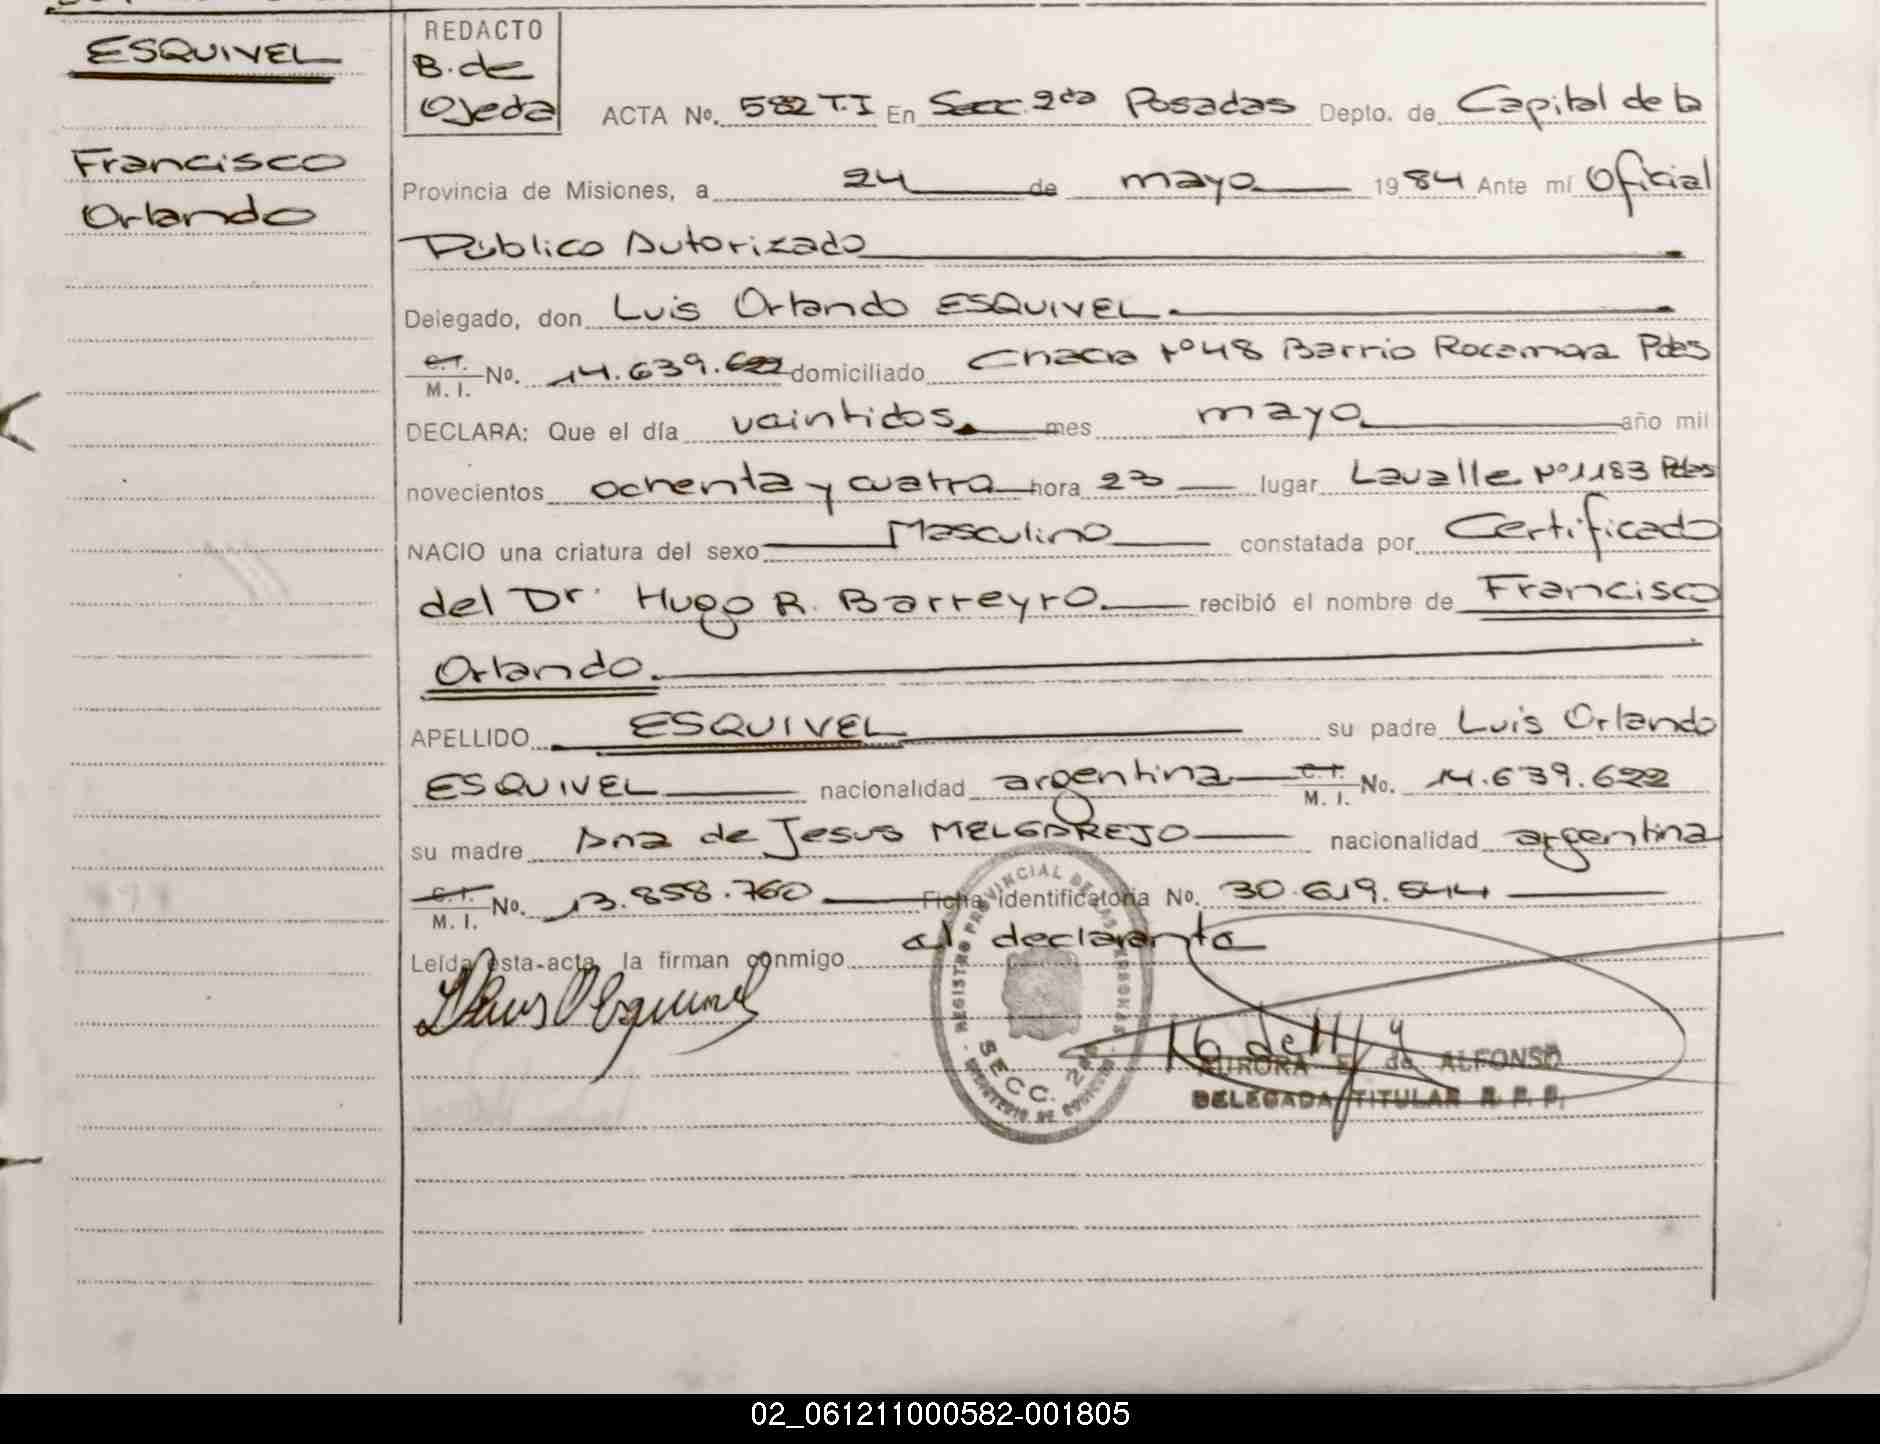 ESQUIVEL
Francisco
Orlando
REDACTO
B. de
Ojeda
ACTA No. 582 T.I En Secc. 2da Posadas Depto. de Capital de la
Provincia de Misiones, a 24 de mayo 1984 Ante mí Oficial
Público Autorizado
Delegado, don Luis Orlando ESQUIVEL
C.I. M.I. No. 14.639.622 domiciliado Chacra Nº 48 Barrio Rocamora Pdas
DECLARA: Que el día veintidos mes mayo año mil
novecientos ochenta y cuatro hora 23 lugar Lavalle Nº 1183 Pdas
NACIO una criatura del sexo Masculino constatada por Certificado
del Dr. Hugo R. Barreyro recibió el nombre de Francisco
Orlando
APELLIDO ESQUIVEL su padre Luis Orlando
ESQUIVEL nacionalidad argentina C.I. M.I. No. 14.639.622
su madre Ana de Jesus MELGAREJO nacionalidad argentina
C.I. M.I. No. 13.858.760 Ficha identificatoria No. 30.619.544
Leída esta acta, la firman conmigo el declarante
REGISTRO PROVINCIAL DE LAS PERSONAS
SECC. 2da
MINISTERIO DE GOBIERNO
AURORA E. de ALFONSO
DELEGADA TITULAR R. P. P.
02_061211000582-001805